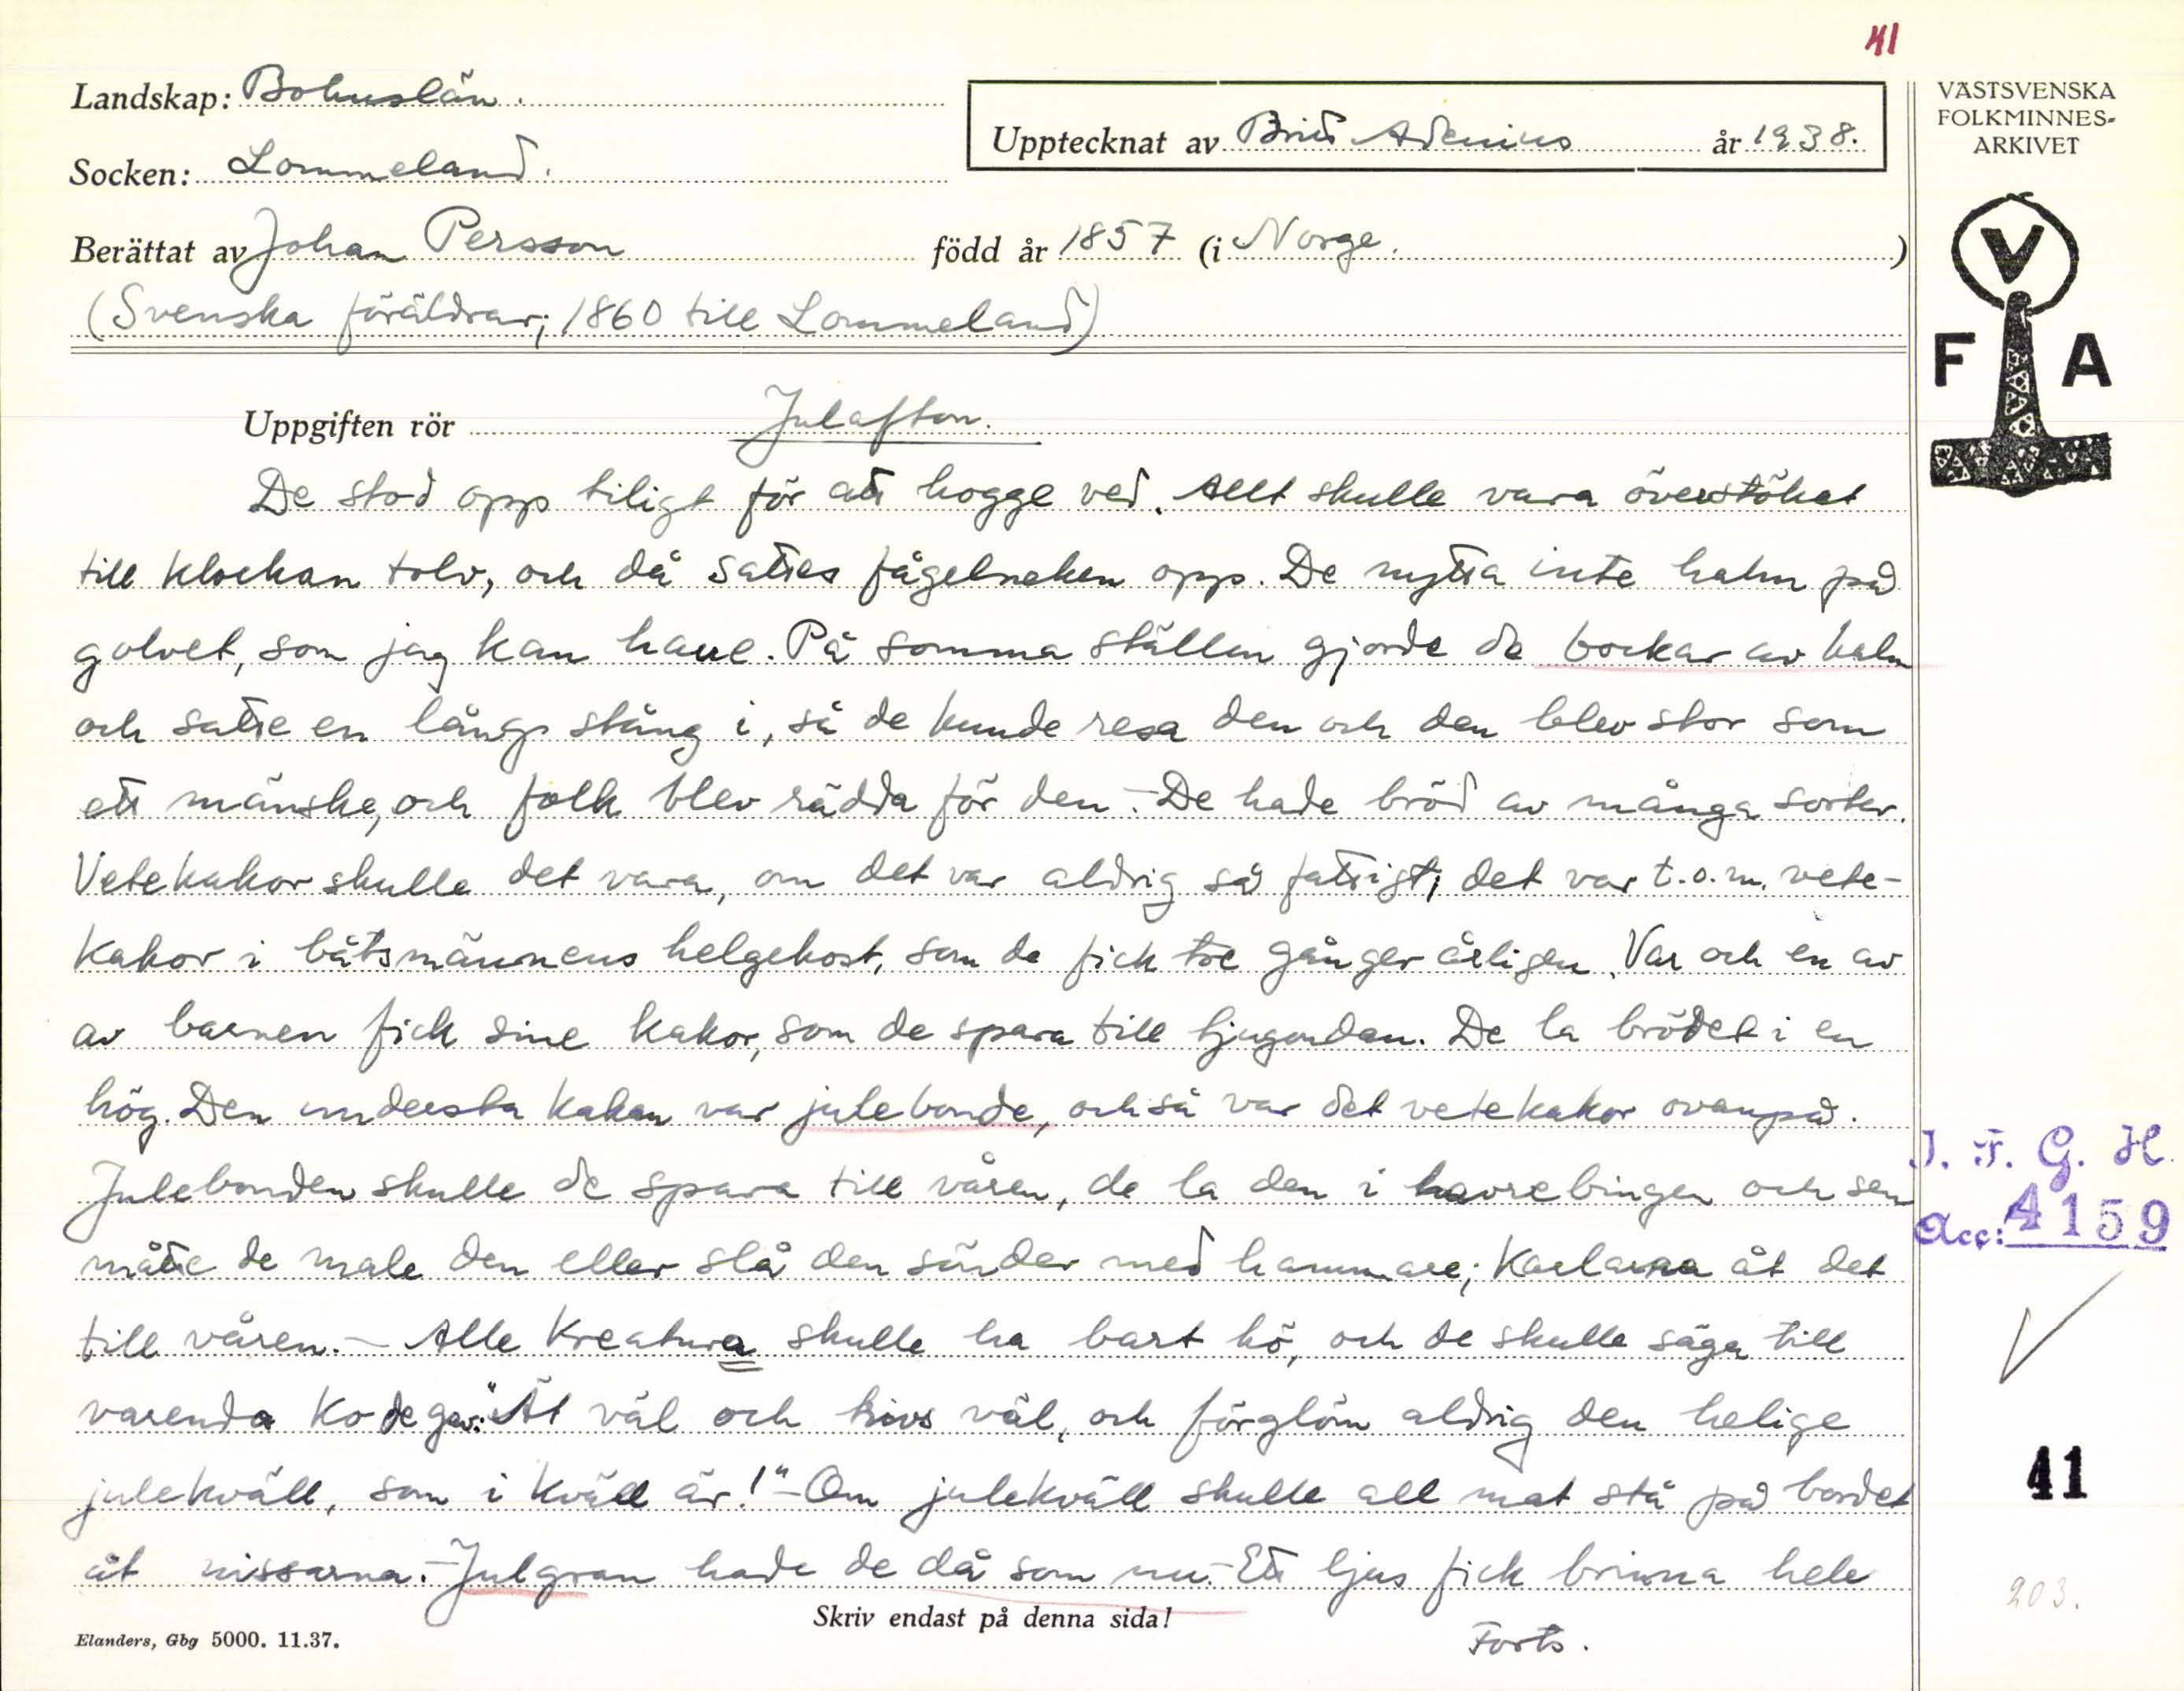 41
Landskap: Bohuslän.
Upptecknat av Britt Adenius år 1938.
VÄSTSVENSKA
FOLKMINNES-
ARKIVET
Socken: Lommeland.
Berättat av Johan Persson född år 1857 (i Norge.)
(Svenska föräldrar; 1860 till Lommeland)
V
F A
Uppgiften rör Julafton.
De stod opp tiligt för att hogge ved. Allt skulle vara överstökat
till klockan tolv, och då sattes fågelneken opp. De nytta inte halm på
golvet, som jag kan haue. På somma ställen gjorde de bockar av halm
och satte en långe stång i, så de kunde resa den och den blev stor som
ett mänske, och folk blev rädda för den. - De hade bröd av många sorter.
Vetekakor skulle det vara, om det var aldrig så fattigt; det var t.o.m. vete-
kakor i båtsmännens helgekost, som de fick tre gånger årligen. Var och en av
av barnen fick sine kakor, som de spara till tjugondan. De la brödet i en
hög. Den understa kakan var julebonde, och så var det vetekakor ovanpå.
Julebonden skulle de spara till våren, de la den i havrebingen och sen
måtte de male den eller slå den sönder med hammare; karlarna åt det
till våren. - Alle kreatura skulle ha bart hö, och de skulle säga till
varenda ko de gav: "Ät väl och trivs väl, och förglöm aldrig den helige
julekväll, som i kväll är!" - Om julekväll skulle all mat stå på bordet
åt nissarna. - Julgran hade de då som nu. - Ett ljus fick brinna hele
Skriv endast på denna sida!
Forts.
Elanders, Gbg 5000. 11.37.
I. F. G. H.
Acc: 4159
41
203.